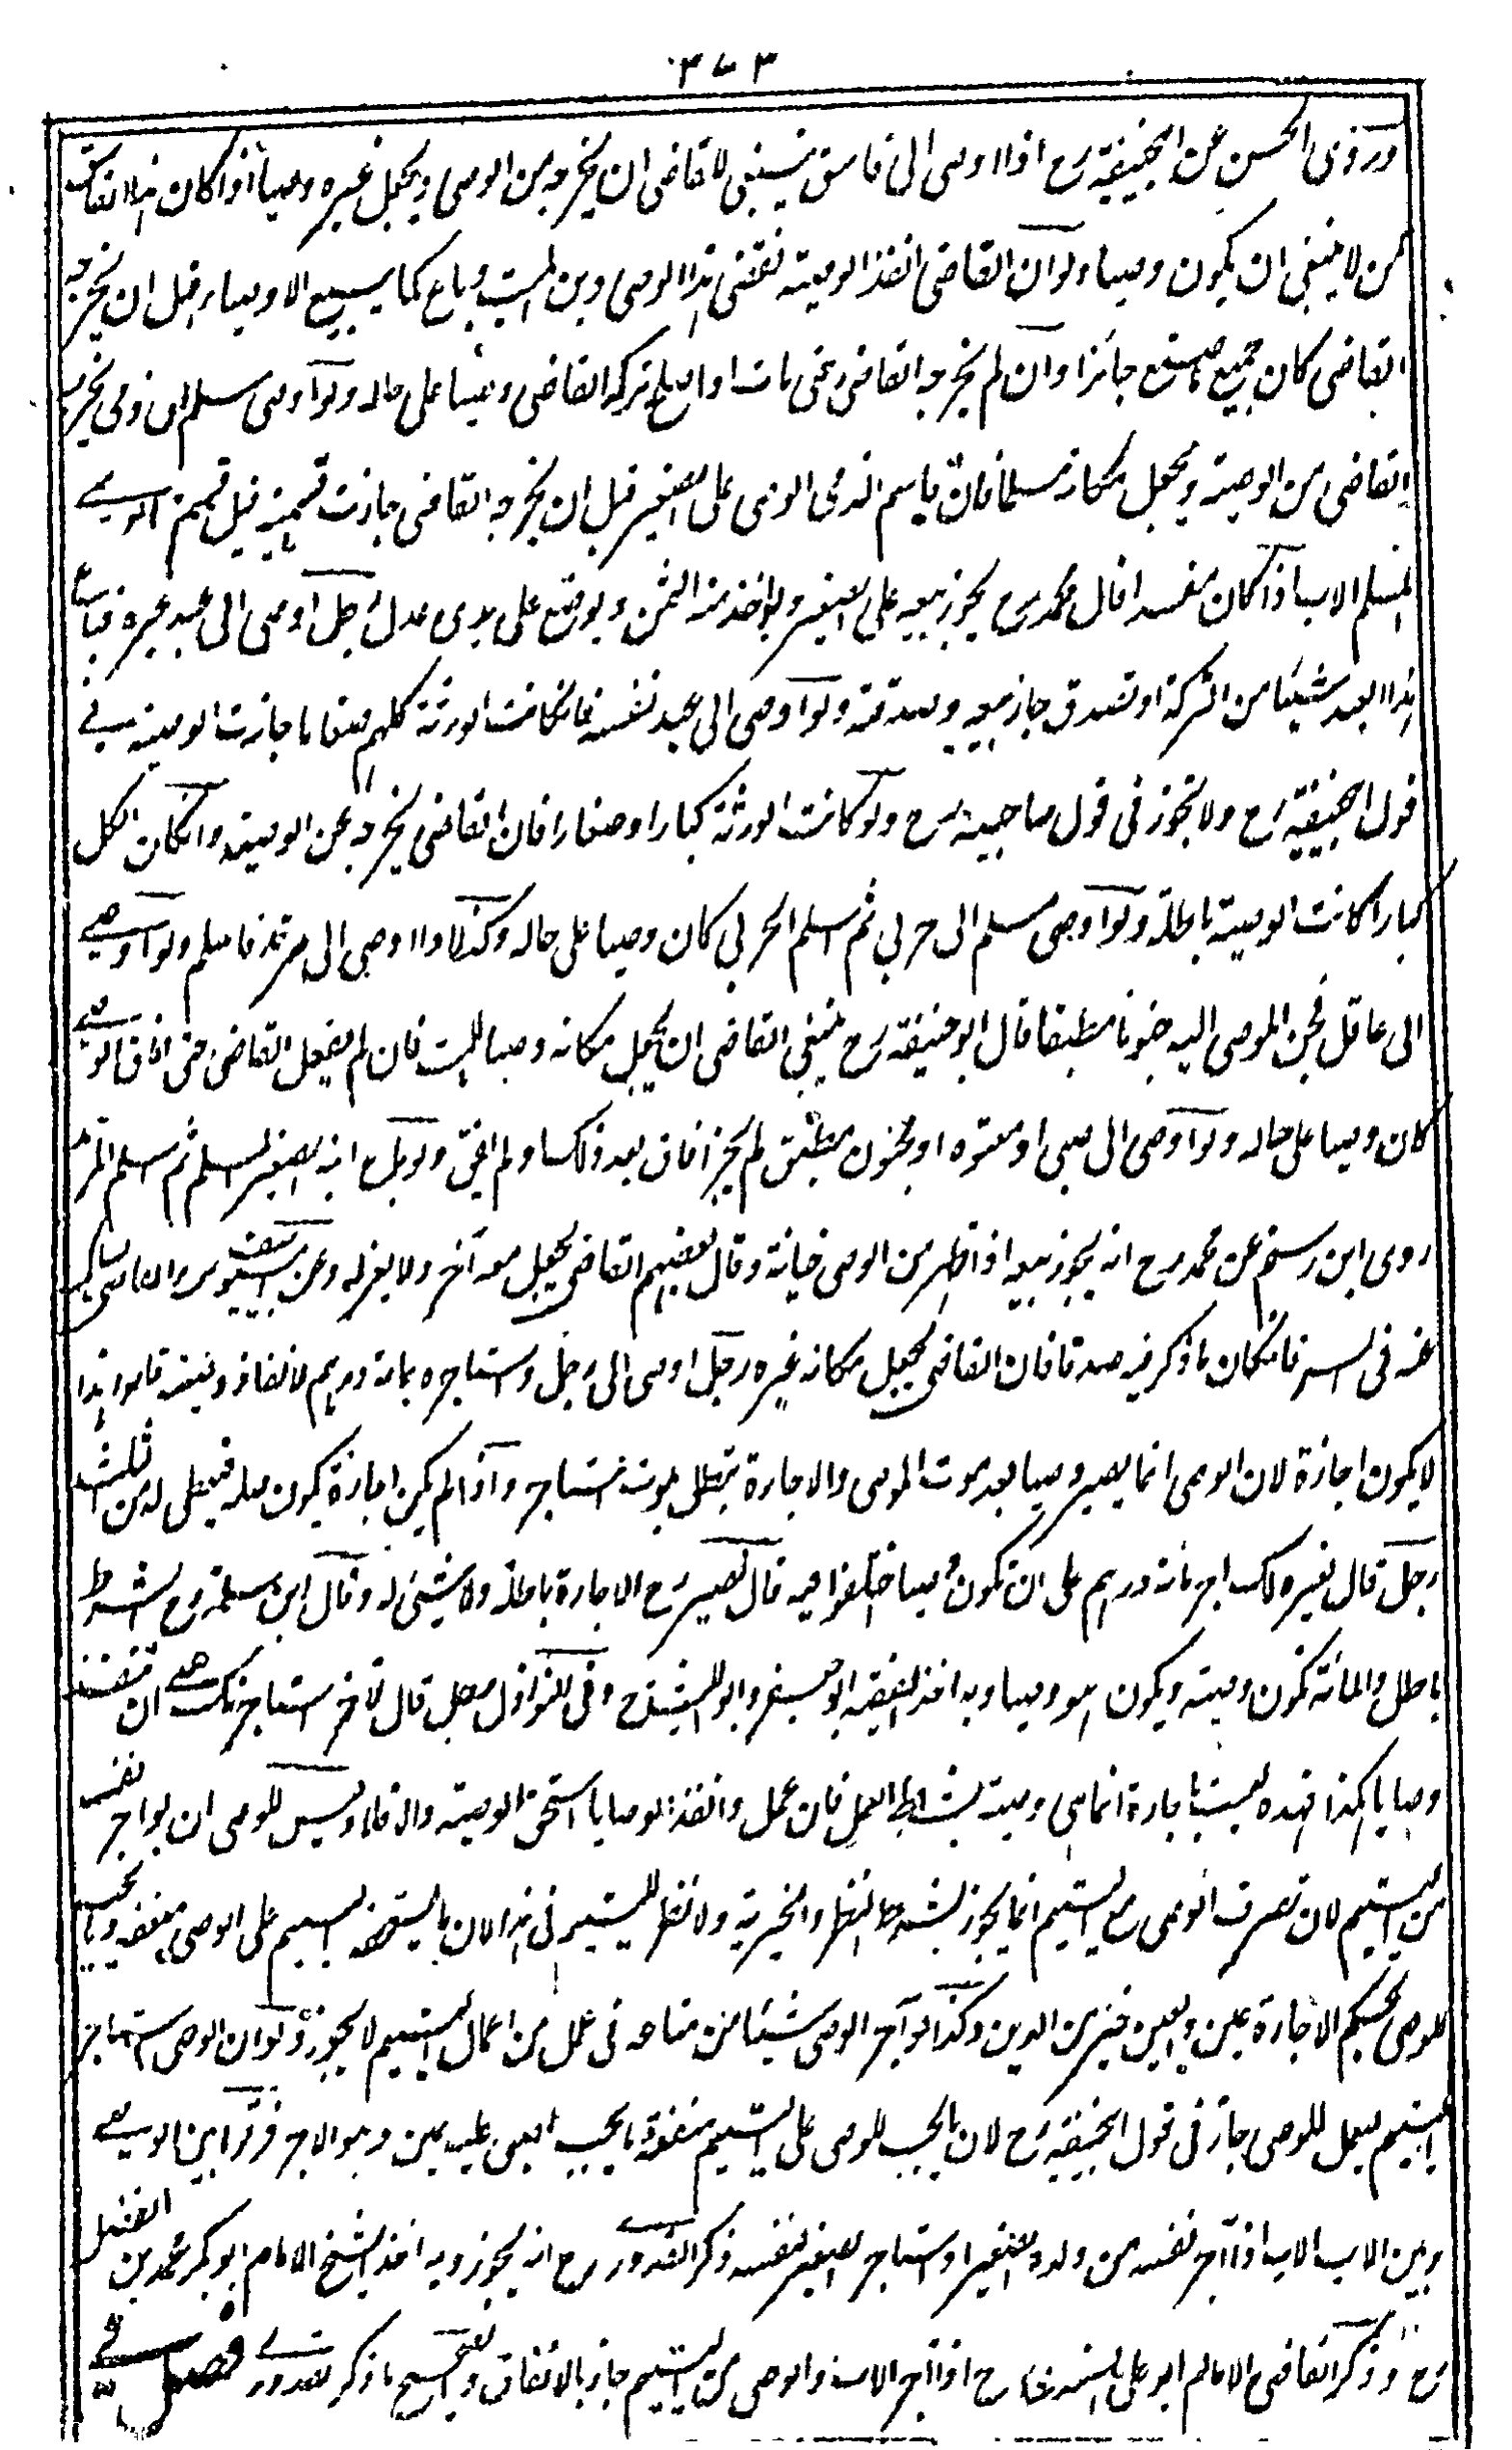 ٣٧٣
وروى الحسن عن ابيحنيفة رح اذا اوصى الى فاسق ينبغى للقاضى ان يخرجه من الوصى ويجعل غيره وصيا اذا كان هذا الفاسق
ممن لا ينبغى ان يكون وصيا ولو ان القاضى انفذ الوصية فقضى هذا الوصى دين الميت وباع كما يبيع الاوصياء قبل ان يخرجه
القاضى كان جميع ما صنع جائزا وان لم يخرجه القاضى حتى تاب او اصلح تركه القاضى وصيا على حاله ولو اوصى مسلم الى ذمى يخرجه
القاضى من الوصية ويجعل مكانه مسلما فان قاسم الذمى الوصى على الصغير قبل ان يخرجه القاضى جازت قسمته قبل قسمة الوصے
المسلم الاب اذا كان مفسدا قال محمد رح يجوز بيعه على الصغير ويؤاخذ منه الثمن ويوضع على يدى عدل رجل اوصى الى عبد غيره فباع
هذا العبد شيئا من التركة او تصدق جاز بيعه وصدقته ولو اوصى الى عبد نفسه فانكانت الورثة كلهم صغارا جازت الوصية فے
قول ابيحنيفة رح ولا تجوز فى قول صاحبيه رح ولو كانت الورثة كبارا وصغارا فان القاضى يخرجه عن الوصية وانكان الكل
كبارا كانت الوصية باطلة ولو اوصى مسلم الى حربى ثم اسلم الحربى كان وصيا على حاله وكذا لو اوصى الى مرتد فاسلم ولو اوصے
الى عاقل فجن الموصى اليه جنونا مطبقا قال ابو حنيفة رح ينبغى القاضى ان يجعل مكانه وصيا للميت فان لم يفعل القاضى حتى افاق الوصے
كان وصيا على حاله ولو اوصى الى صبى او معتوه او مجنون مطبق لم يجز افاق بعد ذلك او لم يفق ولو باع ابنه الصغير المسلم ثم اسلم المرتد
روى ابن رستم عن محمد رح انه يجوز بيعه اذا ظهر من الوصى خيانة وقال بعضهم القاضى يجعل معه آخر ولا يعزله وعن ابى يوسف رح القاضى يسال
عنه فى السر فانكان ما ذكر فيه صدقا فان القاضى يجعل مكانه غيره رجل اوصى الى رجل واستاجره بمائة درهم لانفاذ وصيته قالوا هذا
لا يكون اجازة لان الوصى انما يصير وصيا بعد موت الموصى والاجارة تبطل بموت المستاجر واذا لم يكن اجازة يكون صلة فيعطى له من الثلث
رجل قال لغيره لك اجر مائة درهم على ان تكون وصيا اختلفوا فيه قال نصير رح الاجارة باطلة ولا شئ له وقال ابن سلمة رح الشرط
باطل والمائة تكون وصية ويكون هو وصيا وبه اخذ الفقيه ابو جعفر وابو الليث رح وفى النوازل رجل قال لآخر استاجرتك على ان تنفذ
وصاياى بكذا فهذه ليست باجارة انما هى وصية بشرط العمل فان عمل وانفذ الوصايا استحق الوصية والا فلا وليس للوصى ان يواجر نفسه
من اليتيم لان تصرف الوصى مع اليتيم انما يجوز بشرط النظر والخيرية ولا نظر لليتيم فى هذا لان ما يستحقه اليتيم على الوصى منفعة وما يجب
للوصى بحكم الاجارة عين والعين خير من الدين وكذا لو آجر الوصى شيئا من متاعه فى عمل من اعمال اليتيم لا يجوز ولو ان الوصى استاجر
اليتيم ليعمل للوصى جاز فى قول ابيحنيفة رح لان ما يجب للوصى على اليتيم منفعة وما يجب للصبى عليه عين وهو الاجر فرق بين الوصے
وبين الاب الاب اذا آجر نفسه من ولده الصغير او استاجر الصغير لنفسه ذكر القدورے رح انه يجوز وبه اخذ الشيخ الامام ابو بكر محمد بن الفضل
رح وذكر القاضى الامام ابو على النسفى رح اذا آجر الاب والوصى من اليتيم جاز بالاتفاق والصحيح ما ذكر القدورے فصل فے